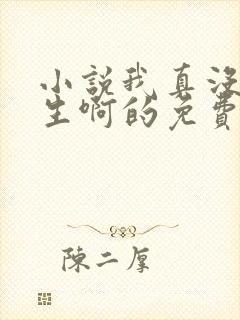 小說我真没
生啊的免費
陳二厚